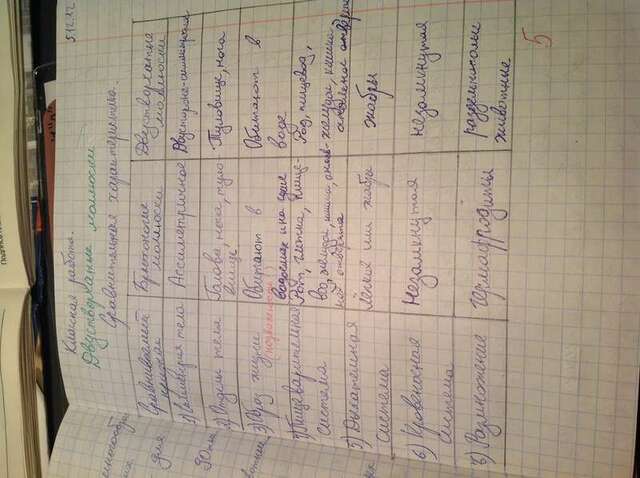 5.12.12
Классная работа.
Двустворчатые моллюски
Сравнительная характеристика.
Сравниваемый Брюхоногие моллюски Двустворчатые моллюски
1) Симметрия тела Ассиметричное Двусторонне-симметричное
2) Отделы тела Голова, нога, туло-
вище Туловище, нога
3) Образ жизни
(подвижный) Обитают в
водоемах и на суше Обитают в
воде
4) Пищеварительная
система Рот, глотка, пище-
вод, желудок, кишка, аналь-
ное отверстие Рот, пищевод,
желудок, кишка
анальное отверстие
5) Дыхательная
система Легкие или жабры жабры
6) Кровеносная
система Незамкнутая незамкнутая
8) Размножение гермафродиты раздельнополые
животные
5
для